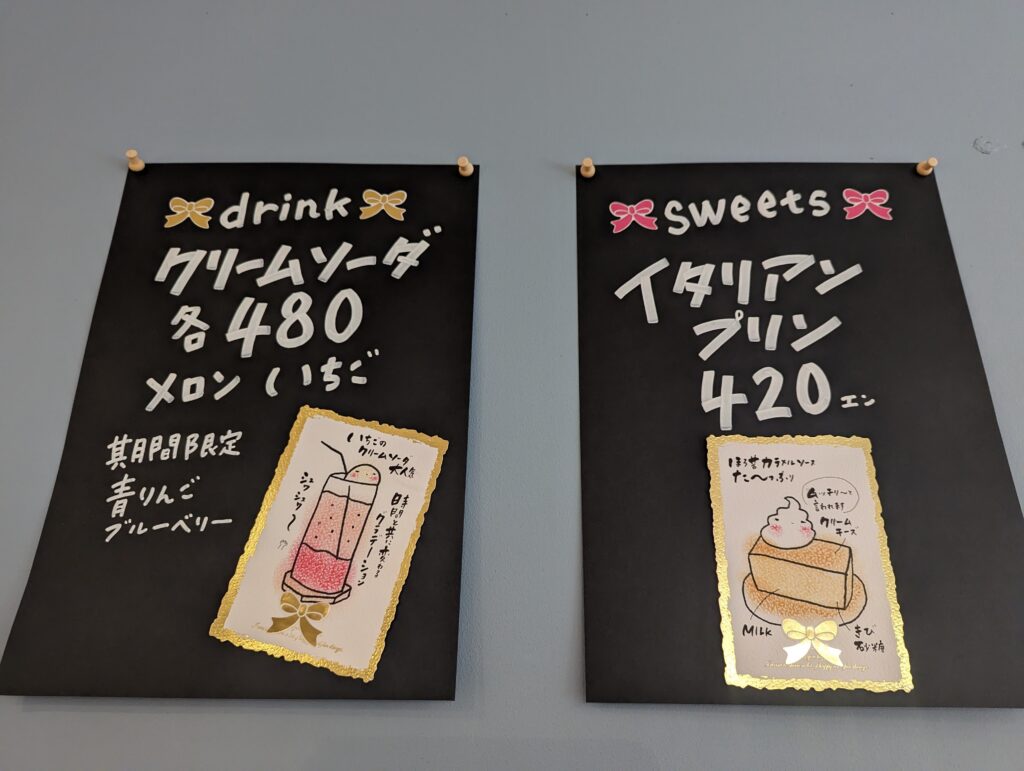 drink
クリームソーダ
各480
メロン いちご
期間限定
青りんご
ブルーベリー
いちごの
クリームソーダ
大人気
シュワ
シュワ〜
時間と共に変わる
グラデーション
sweets
イタリアン
プリン
420エン
ほろ苦カラメルソース
た〜っぷり
ムッチリ〜と
言われます
クリーム
チーズ
MILK
きび
砂糖